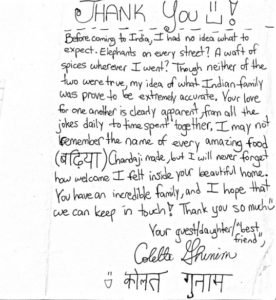 THANK YOU !
Before coming to India, I had no idea what to
expect. Elephants on every street? A waft of
spices wherever I went? Though neither of the
two were true, my idea of what Indian family
was prove to be extremely accurate. Your love
for one another is clearly apparent from all the
jokes daily to time spent together. I may not
remember the name of every amazing food
(बढ़िया) Chandaji made, but I will never forget
how welcome I felt inside your beautiful home.
You have an incredible family, and I hope that
we can keep in touch! Thank you so much
Your guest/daughter/"best
friend",
Colette Ghunim
कोलत गुनाम